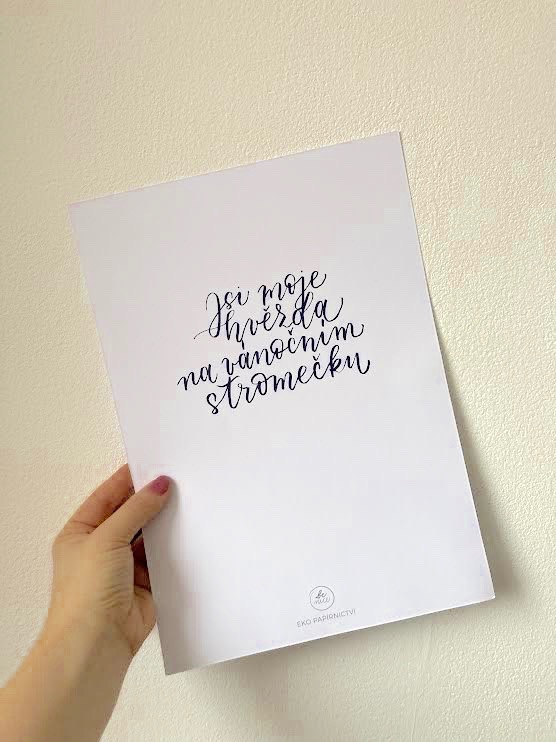 Jsi moje
hvězda
na vánočním
stromečku
be
nice
EKO PAPÍRNICTVÍ